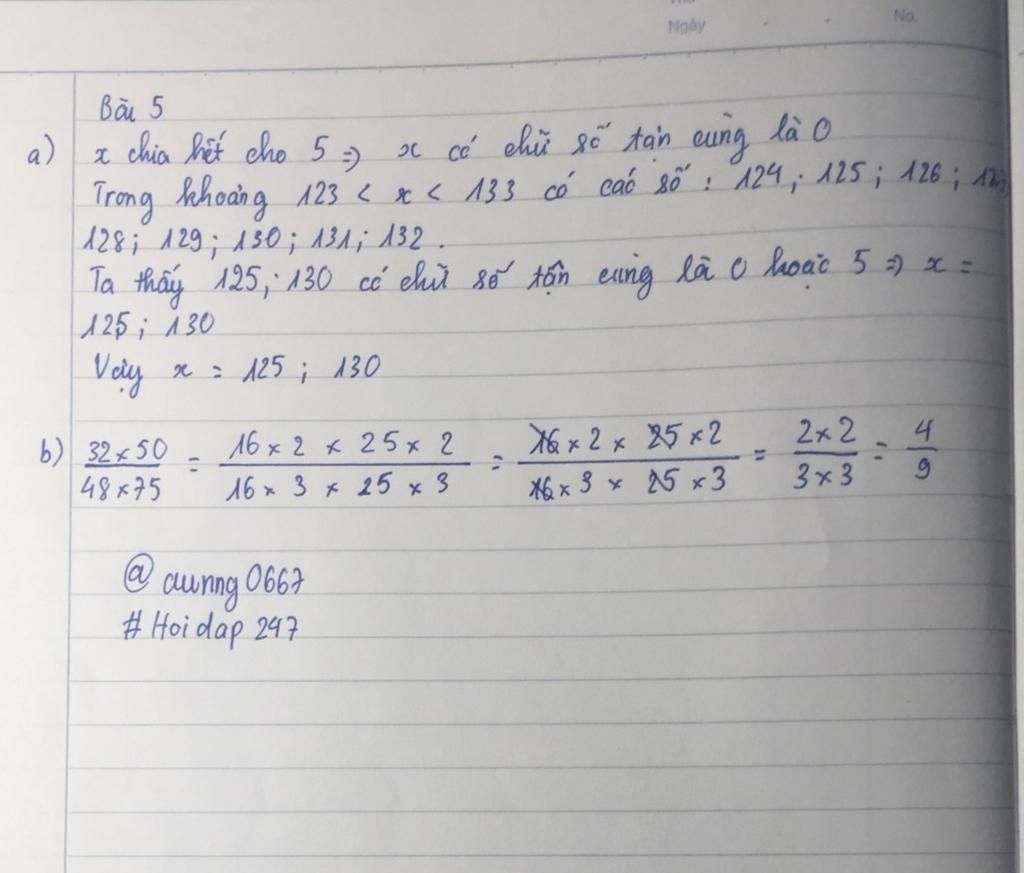 Ngày
No.
Bài 5
a) x chia hết cho 5 => x có chữ số tận cùng là 0
Trong khoảng 123 < x < 133 có các số : 124 ; 125 ; 126 ;
128 ; 129 ; 130 ; 131 ; 132 .
Ta thấy 125 ; 130 có chữ số tận cùng là 0 hoặc 5 => x =
125 ; 130
Vậy x = 125 ; 130
b) 32 x 50 / 48 x 75 = 16 x 2 x 25 x 2 / 16 x 3 x 25 x 3 = 16 x 2 x 25 x 2 / 16 x 3 x 25 x 3 = 2 x 2 / 3 x 3 = 4 / 9
@ aunng0667
# Hoidap 247